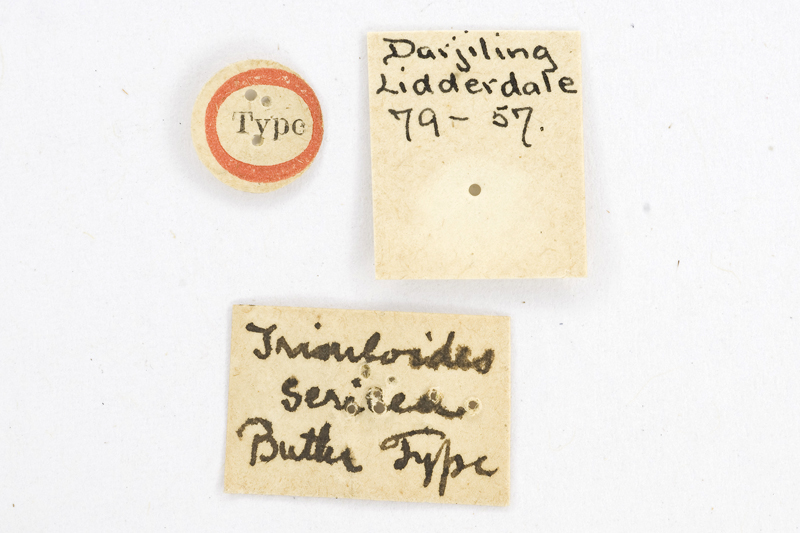 Type
Darjiling
Lidderdale
79 - 57.
Trimuloides
sericea
Butler Type